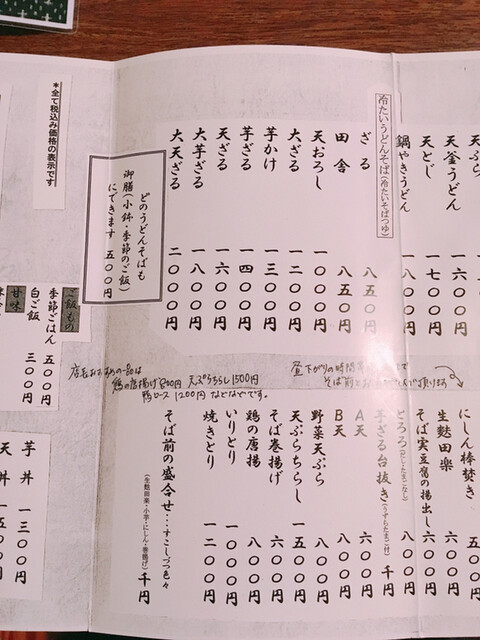 天ぷら
天釜うどん 一六〇〇円
天とじ 一七〇〇円
鍋やきうどん 一八〇〇円
冷たいうどんそば(冷たいそばつゆ)
ざる 八五〇円
田舎 八五〇円
天おろし 一〇〇〇円
大ざる 一二〇〇円
芋かけ 一三〇〇円
芋ざる 一四〇〇円
天ざる 一六〇〇円
大芋ざる 一八〇〇円
大天ざる 二〇〇〇円
どのうどんそばも
御膳(小鉢・季節のご飯)
にできます 五〇〇円
*全て税込み価格の表示です
ご飯もの
季節ごはん 五〇〇円
白ご飯 三〇〇円
甘味
店主おすすめの一品は
鶏の唐揚げ800円 天ぷらちらし1500円
鴨ロース1200円などなどです。
にしん棒焚き
生麩田楽 六〇〇円
そば実豆腐の揚出し 六〇〇円
とろろ 八〇〇円
芋ざる台抜き(うずらたまご付) 千円
A天 八〇〇円
B天 八〇〇円
野菜天ぷら 八〇〇円
天ぷらちらし 一五〇〇円
そば巻揚げ 六〇〇円
鶏の唐揚 八〇〇円
いりとり 一〇〇〇円
焼きとり 一二〇〇円
そば前の盛合せ…すこしづつ色々
(生麩田楽・小芋・にしん・巻揚げ) 千円
芋丼 一三〇〇円
天丼 一五〇〇円